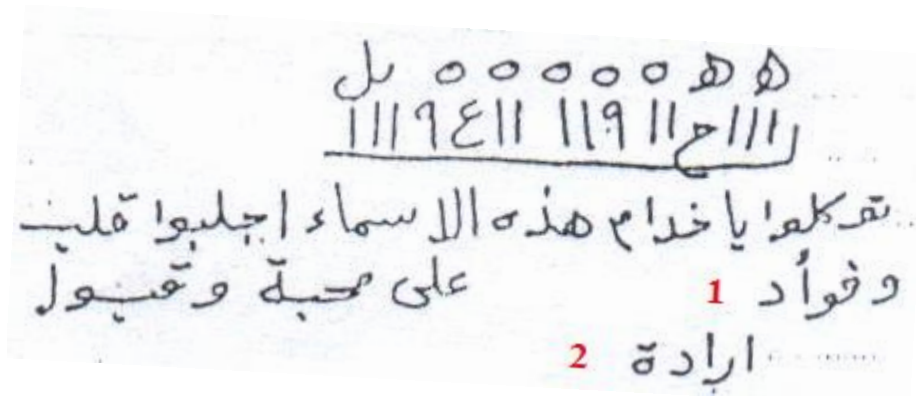 ه ه ٥ ٥ ٥ ٥ ٥ ىل
١١١ح١١٩١١ ١١ع٩١١١
توكلوا يا خدام هذه الاسماء اجلبوا قلب
وفوأد 1 على محبة وقبول
ارادة 2